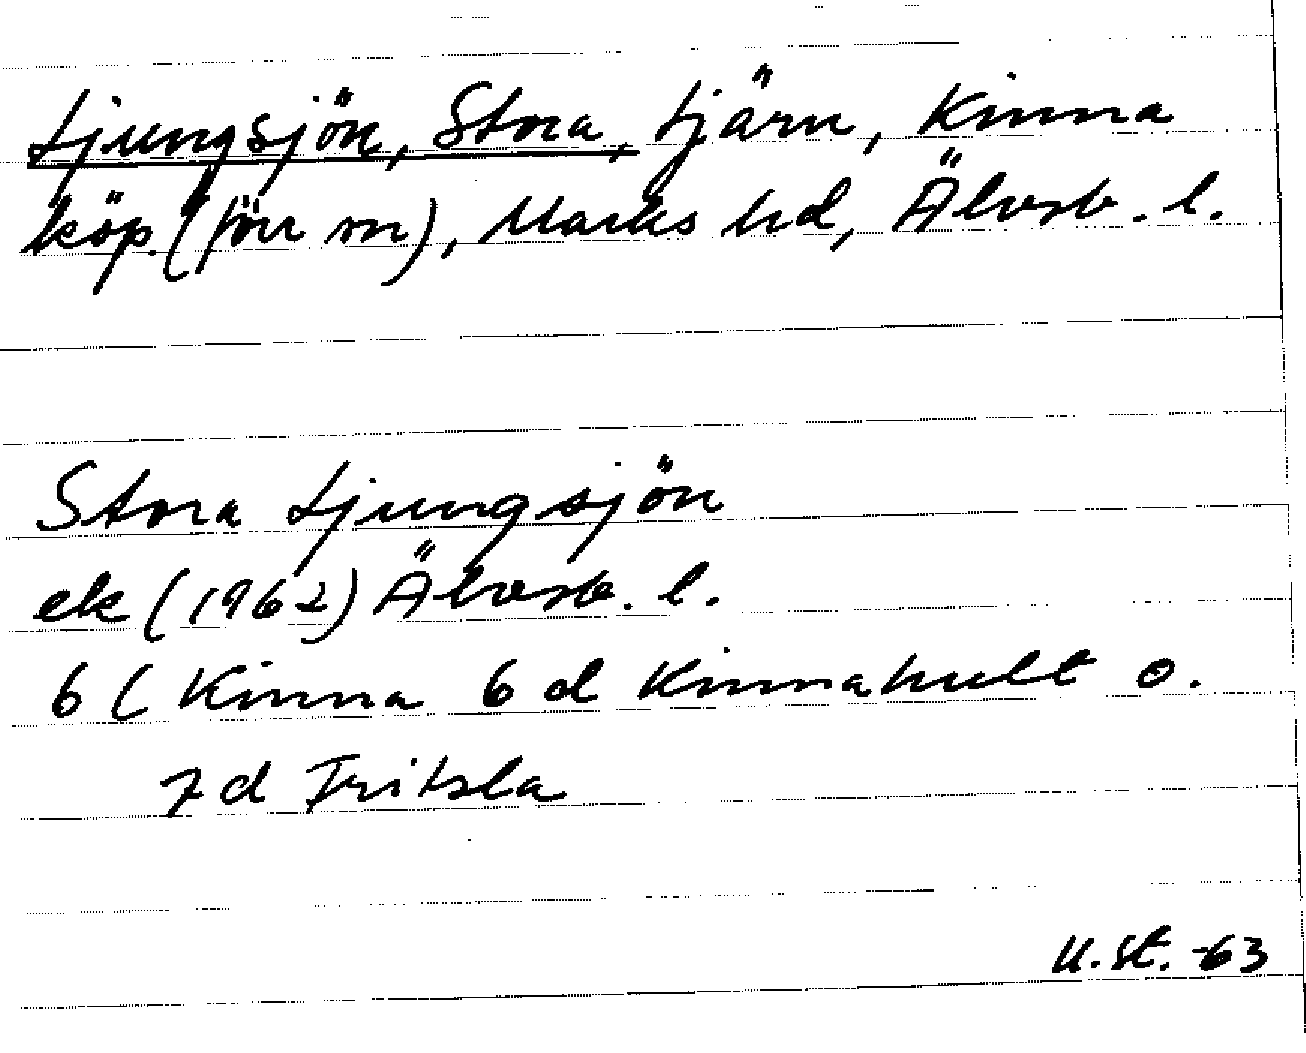 Ljungsjön, Stora, tjärn, Kinna
köp. (förr sn), Marks hd, Älvsb. l.
Stora Ljungsjön
ek (1962) Älvsb. l.
6 ( Kinna 6 d Kinnahult o.
7 d Fritsla
U. St. -63